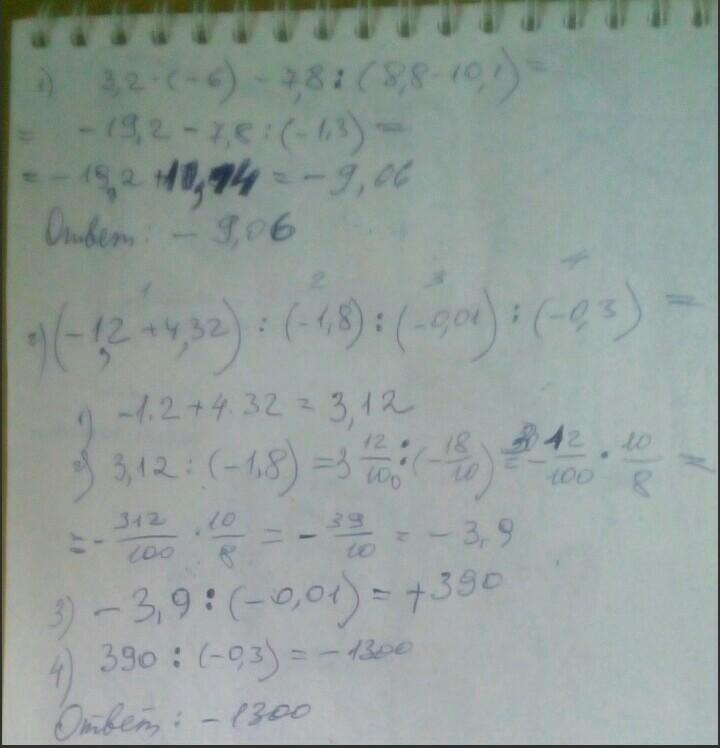 1) 3,2·(-6) - 7,8 : (8,8-10,1) =
= -19,2 - 7,8 : (-1,3) =
= -19,2 + 10,14 = -9,06
Ответ: -9,06
1 2 3 4
2) (-1,2 + 4,32) : (-1,8) : (-0,01) : (-0,3) =
1) -1.2 + 4.32 = 3,12
2) 3,12 : (-1,8) = 3 12/100 : (-18/10) = - 312/100 · 10/8 =
= - 312/100 · 10/8 = - 39/10 = -3,9
3) -3,9 : (-0,01) = +390
4) 390 : (-0,3) = -1300
Ответ: -1300